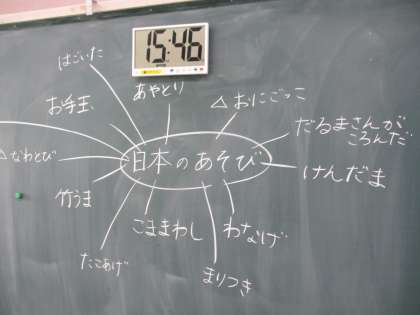 15:46
はごいた
あやとり
△おにごっこ
お手玉
だるまさんが
ころんだ
日本のあそび
△なわとび
けんだま
竹うま
こままわし
わなげ
たこあげ
まりつき